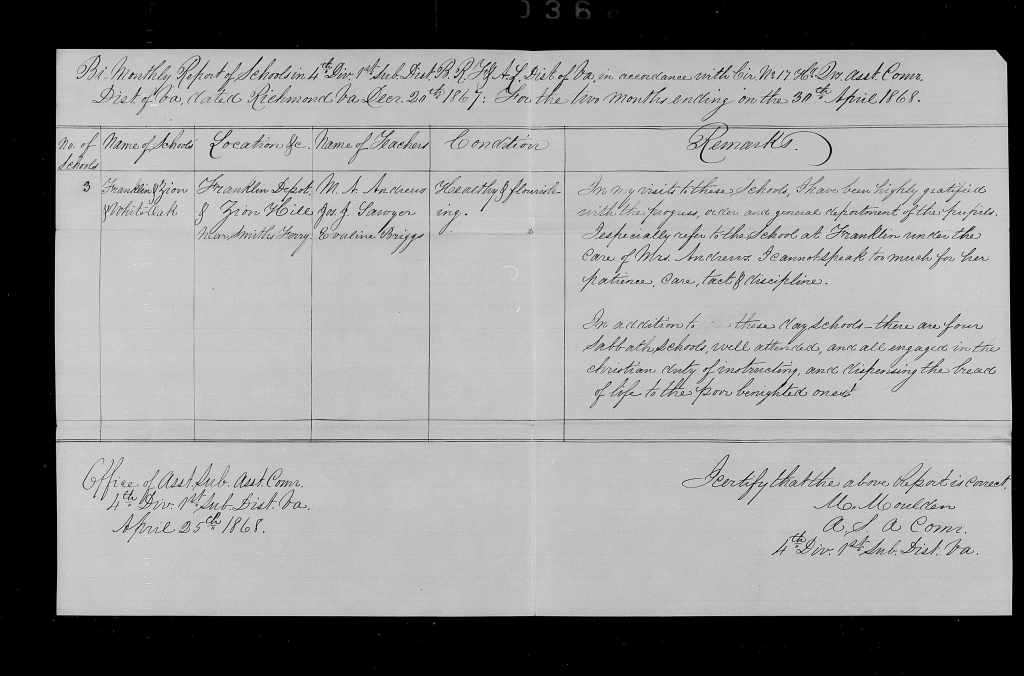 036
Bi. Monthly Report of Schools in 4th Div. 1st Sub. Dist. B. R. F. & A. L. Dist of Va, in accordance with Cir No 17 Hd. Qrs. Asst. Comr.
Dist of Va, dated Richmond Va Decr. 20th 1867: For the two months ending on the 30th April 1868.
No. of Schools
Name of Schools
Location &c.
Name of Teachers
Condition
Remarks.
3
Franklin & Zion
& White Oak
Franklin Depot,
& Zion Hill
near Smiths Ferry.
M. A. Andrews
Jos. J. Sawyer
Eveline Briggs
Healthy & flourish-
ing.
In my visits to these Schools, I have been highly gratified
with the progress, order and general deportment of the pupils.
I especially refer to the School at Franklin under the
care of Mrs. Andrews. I cannot speak too much for her
patience, care, tact & discipline.
In addition to these day schools - there are four
Sabbath Schools, well attended, and all engaged in the
christian duty of instructing, and dispensing the bread
of life to the poor benighted ones!
Office of Asst. Sub. Asst. Comr.
4th Div. 1st Sub. Dist. Va.
April 25th 1868.
I certify that the above Report is correct.
M. Moulden
A S A Comr.
4th Div. 1st Sub. Dist. Va.